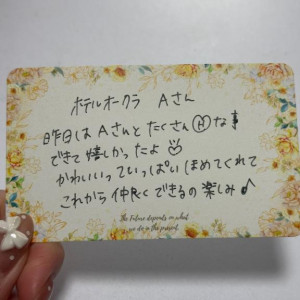 ホテルオークラ Aさん
昨日はAさんとたくさんⒽな事
できて嬉しかったよ
かわいいっていっぱいほめてくれて
これから仲良くできるの楽しみ♪
The Future depends on what
we do in the present.